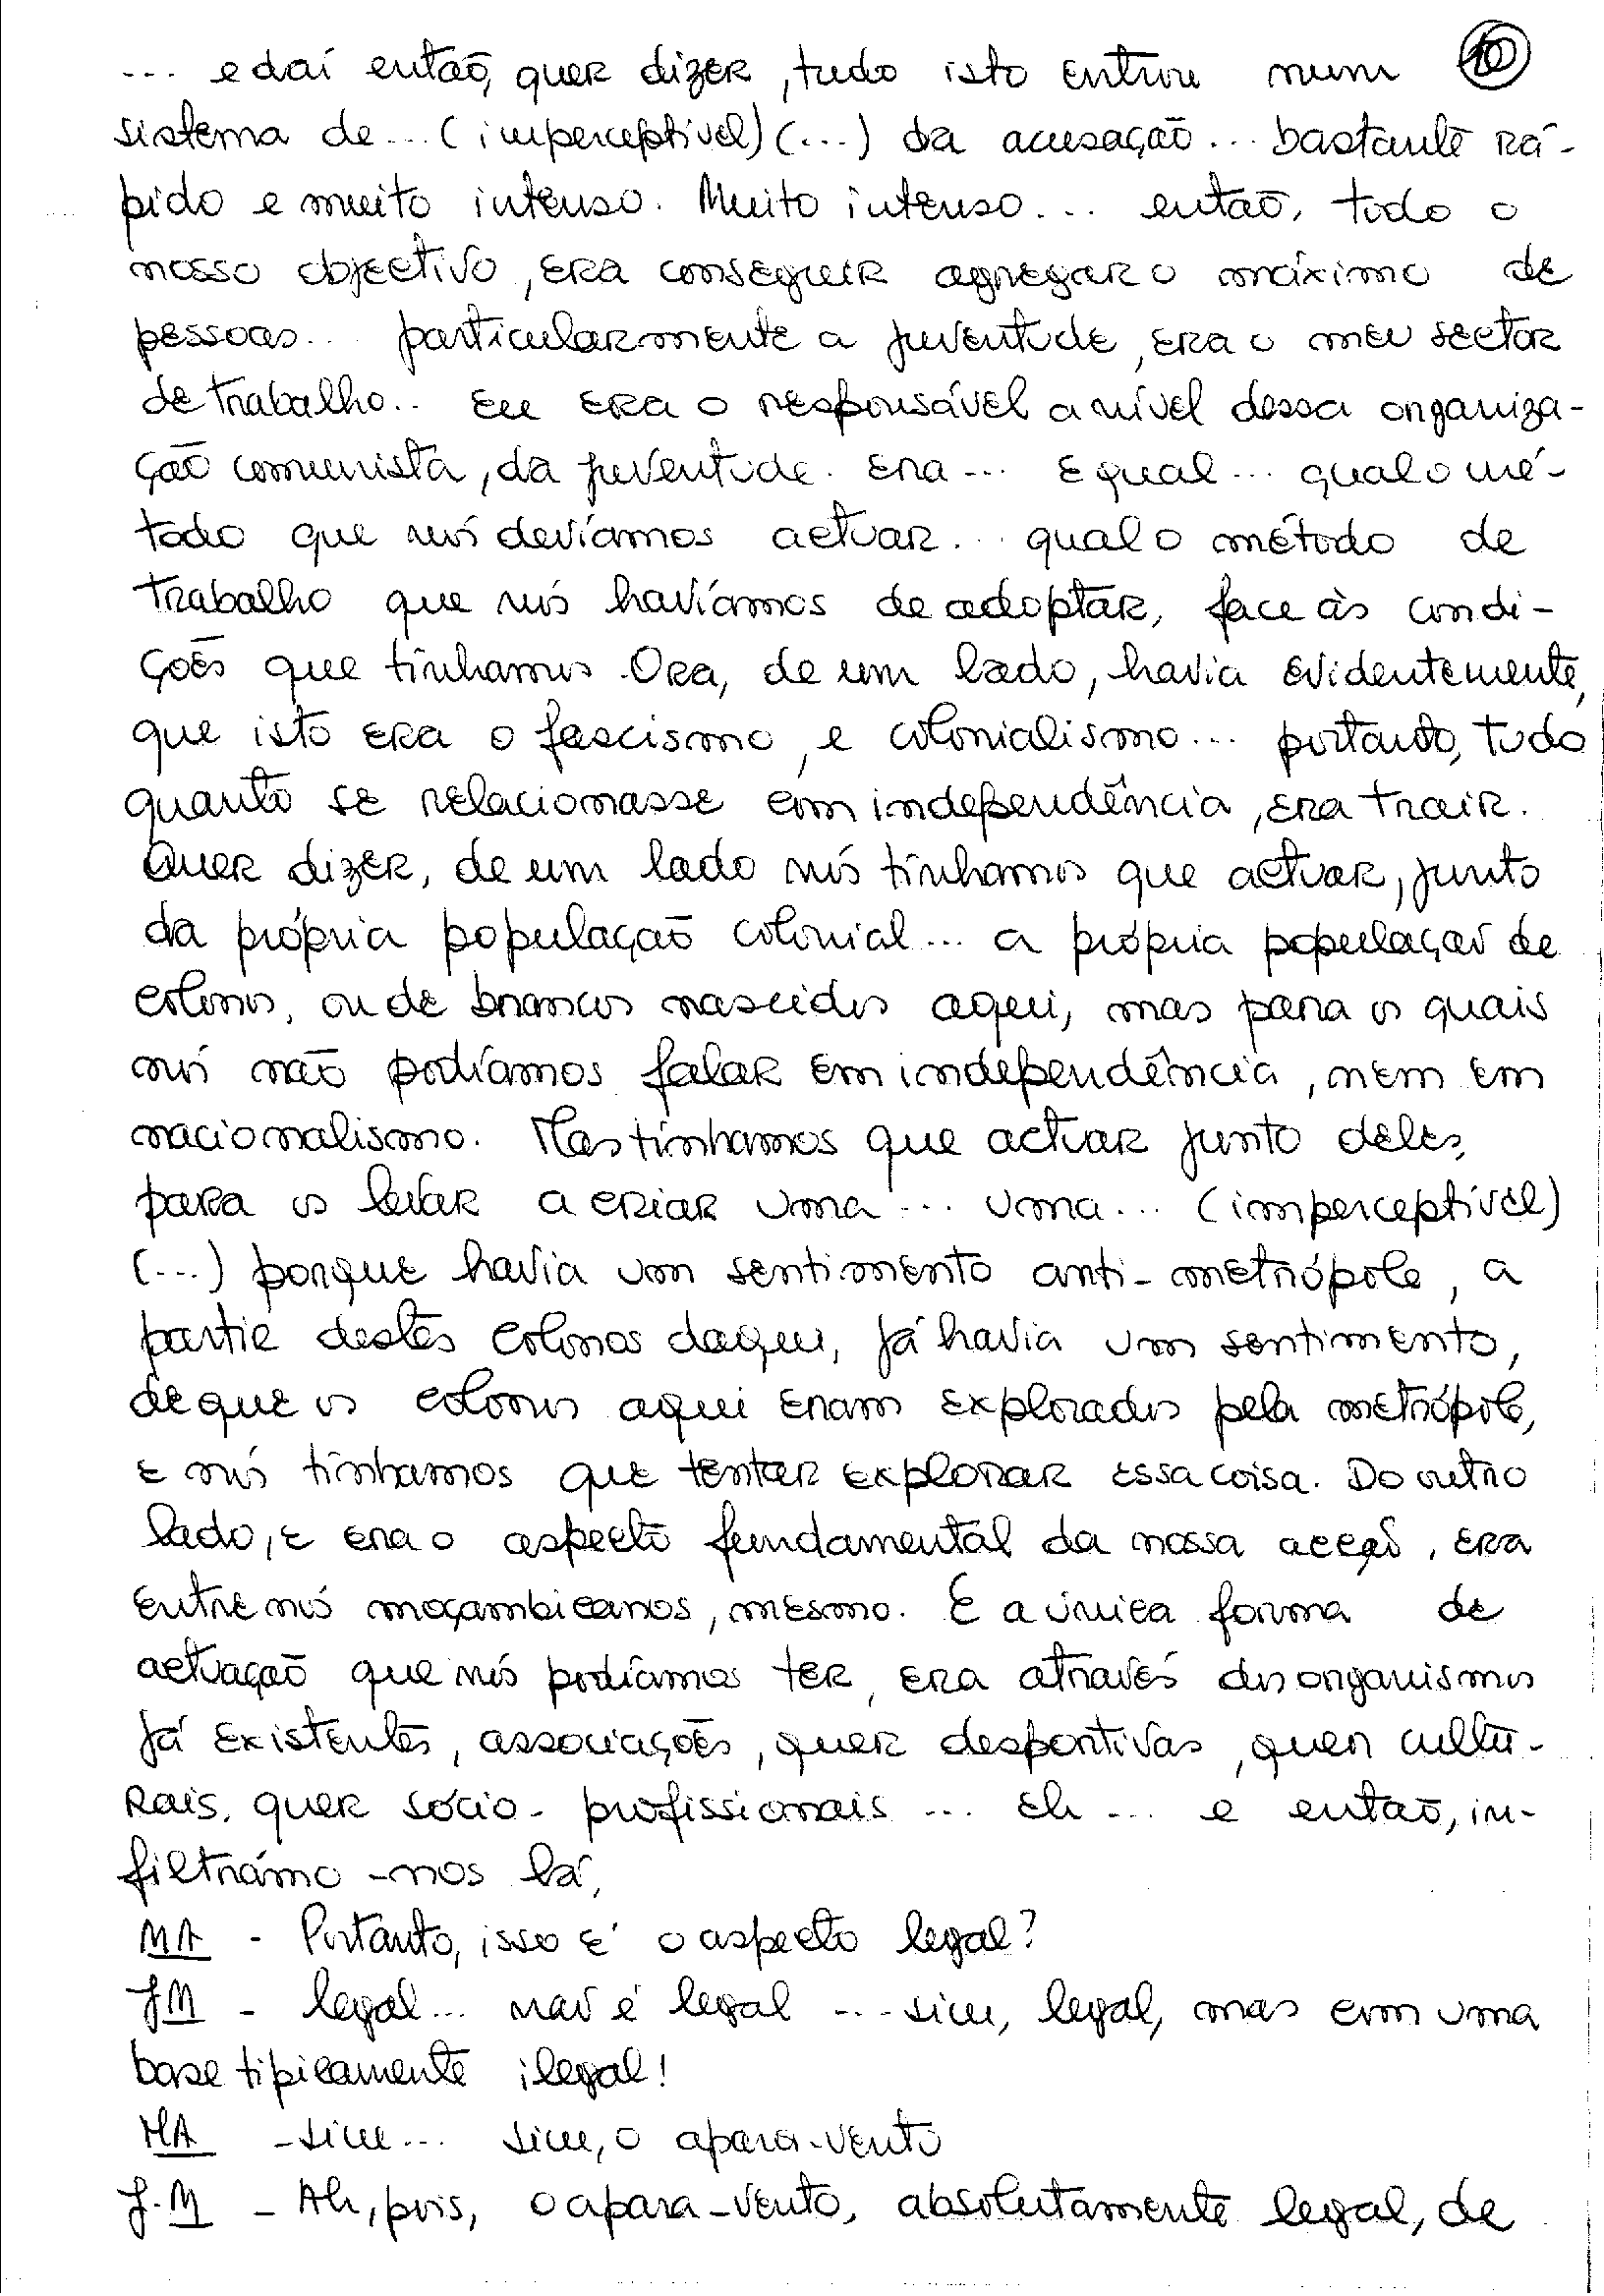 ... e daí então, quer dizer, tudo isto entrou num 10
sistema de... (imperceptível) (...) da acusação... bastante rá-
pido e muito intenso. Muito intenso... então, todo o
nosso objectivo, era conseguir agregar o máximo de
pessoas... particularmente a juventude, era o meu sector
de trabalho.. Eu era o responsável a nível dessa organiza-
ção comunista, da juventude. Era... E qual... qual o mé-
todo que nós devíamos actuar... qual o método de
trabalho que nós havíamos de adoptar, face às condi-
ções que tínhamos. Ora, de um lado, havia evidentemente,
que isto era o fascismo, e colonialismo... portanto, tudo
quanto se relacionasse com independência, era trair.
Quer dizer, de um lado nós tínhamos que actuar, junto
da própria população colonial... a própria população de
colonos, ou de brancos nascidos aqui, mas para os quais
nós não podíamos falar em independência, nem em
nacionalismo. Mas tínhamos que actuar junto deles,
para os levar a criar uma... uma... (imperceptível)
(...) porque havia um sentimento anti-metrópole, a
partir destes colonos daqui, já havia um sentimento,
de que os colonos aqui eram explorados pela metrópole,
e nós tínhamos que tentar explorar essa coisa. Do outro
lado, e era o aspecto fundamental da nossa acção, era
entre nós moçambicanos, mesmo. E a única forma de
actuação que nós podíamos ter, era através dos organismos
já existentes, associações, quer desportivas, quer cultu-
rais, quer sócio-profissionais... eh... e então, in-
filtrámo-nos lá,
MA - Portanto, isso é o aspecto legal?
JM - legal... não é legal ... sim, legal, mas com uma
base tipicamente ilegal!
MA - sim... sim, o apara-vento
J.M - Ah, pois, o apara-vento, absolutamente legal, de